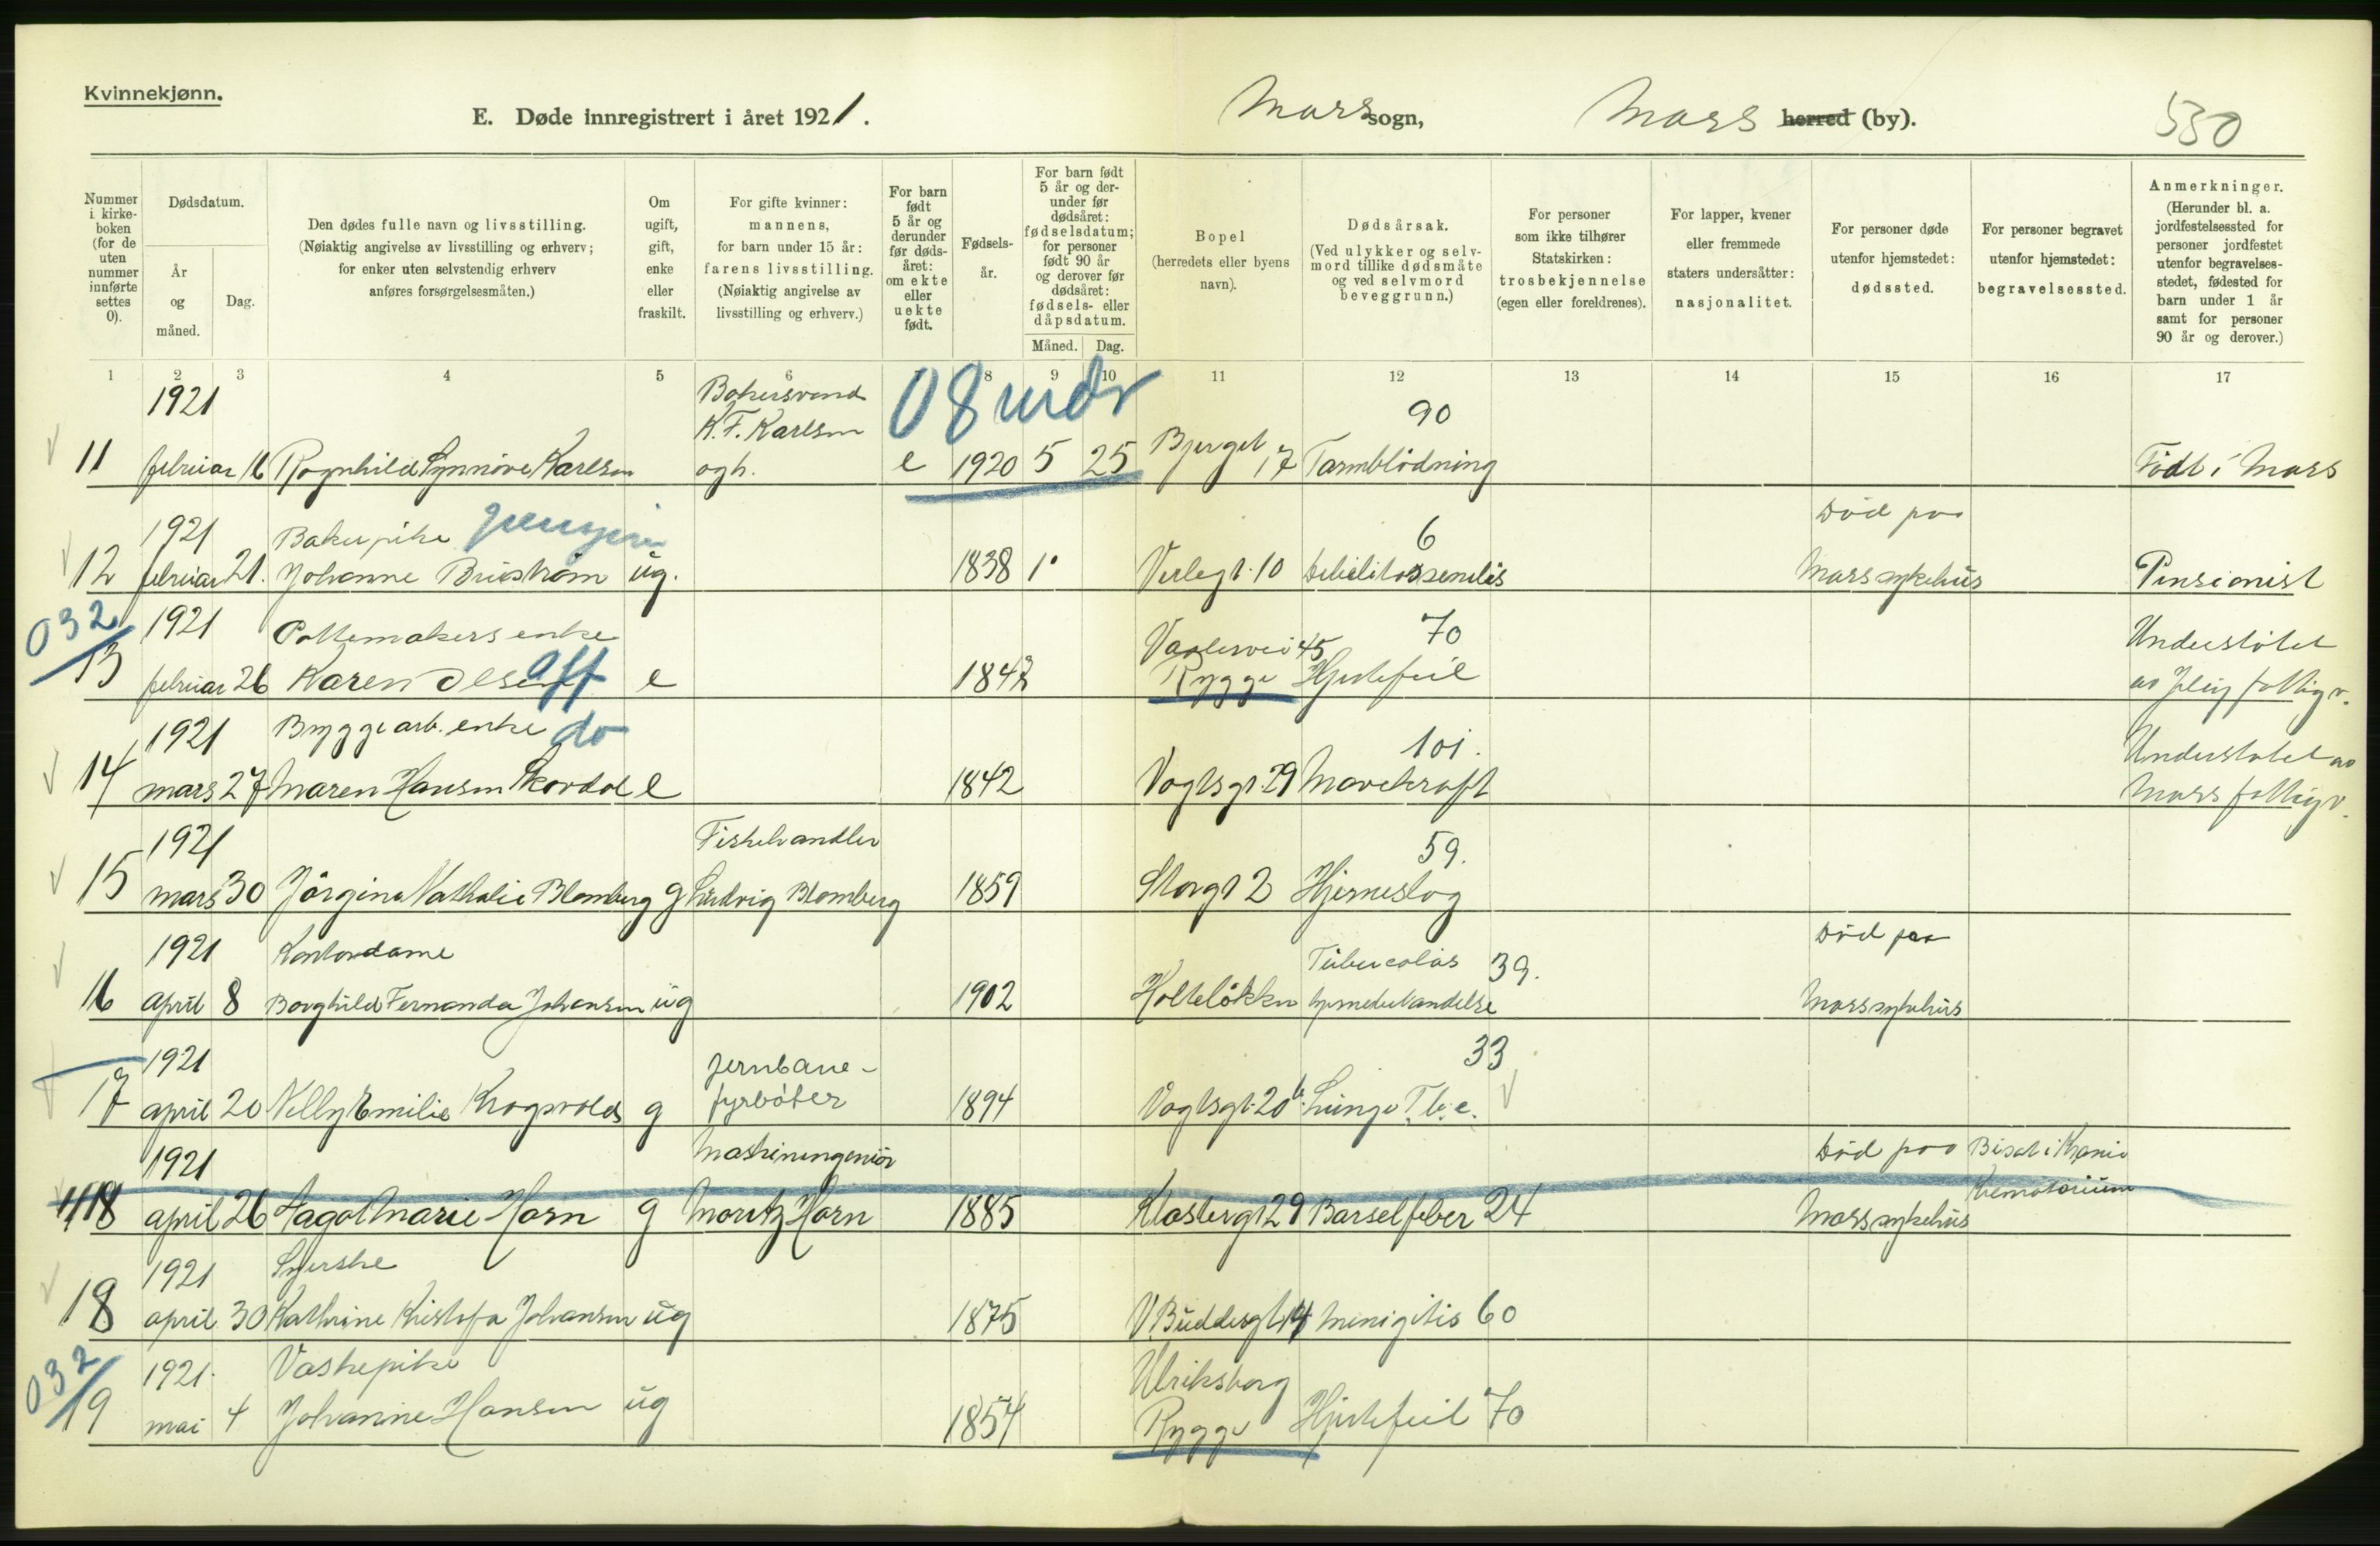 Kvinnekjønn.
E. Døde innregistrert i året 1921.
Moss sogn,
Moss herred (by).
530
Nummer i kirke-boken (for de uten nummer innførte settes 0).
Dødsdatum.
År og måned.
Dag.
Den dødes fulle navn og livsstilling.
(Nøiaktig angivelse av livsstilling og erhverv;
for enker uten selvstendig erhverv
anføres forsørgelsesmåten.)
Om ugift, gift, enke eller fraskilt.
For gifte kvinner:
mannens,
for barn under 15 år:
farens livsstilling.
(Nøiaktig angivelse av
livsstilling og erhverv.)
For barn født 5 år og derunder før døds-året: om ekte eller uekte født.
Fødsels-år.
For barn født 5 år og der-under før dødsåret: fødselsdatum; for personer født 90 år og derover før dødsåret: fødsels- eller dåpsdatum.
Måned.
Dag.
Bopel
(herredets eller byens
navn).
Dødsårsak.
(Ved ulykker og selv-
mord tillike dødsmåte
og ved selvmord
beveggrunn.)
For personer
som ikke tilhører
Statskirken:
trosbekjennelse
(egen eller foreldrenes).
For lapper, kvener
eller fremmede
staters undersåtter:
nasjonalitet.
For personer døde
utenfor hjemstedet:
dødssted.
For personer begravet
utenfor hjemstedet:
begravelsessted.
Anmerkninger.
(Herunder bl. a.
jordfestelsessted for
personer jordfestet
utenfor begravelses-
stedet, fødested for
barn under 1 år
samt for personer
90 år og derover.)
1 2 3 4 5 6 8 9 10 11 12 13 14 15 16 17
1921 Bakersvend 08 mdr 90
K.F. Karlsen
11 februar 16 Ragnhild Synnöve Karlsen ogh. e 1920 5 25 Bjerget 17 Tarmblödning Födt i Moss
1921 Bakerpike 6 Död paa
12 februar 21. Johanne Briström ug. 1838 Verlegt. 10 debilitas senilis Moss sykehus Pensionist
032 1921 Pottemakers enke Vaalervei 45 70 Understötet
13 februar 26 Karen Olsen e 1842 Rygge Hjertefeil av Jelöy fattigv.
1921 Bryggearb. enke do 101. Understötet av
14 mars 27 Maren Hansen Skovdal e 1842 Vogtsgt. 29 Mavekraft Moss fattigv.
1921 Fiskehandler 59.
15 mars 30 Jörgine Nathalie Blomberg g Ludvig Blomberg 1859 Storgt 2 Hjerneslag
1921 Kontordame Tuberculös 39. Död paa
16 april 8 Borghild Fernanda Johansen ug 1902 Holtelökken hjernebetændelse Moss sykehus
1921 Jernbane- 33
17 april 20 Nelly Emilie Krogsvold g fyrböter 1894 Vogtsgt. 20 b. Lunge T.b.c.
1921 Maskiningeniör Död paa Bisat i Krania
18 april 26 Aagot Marie Horn g Moritz Horn 1885 Klostergt 29 Barselfeber 24 Moss sykehus Krematorium
1921 Syerske
18 april 30 Kathrine Kristofa Johansen ug 1875 V. Buddesgt 14 Menigitis 60
032 1921. Vaskepike Ulriksborg
19 mai 4 Johanne Hansen ug 1854 Rygge Hjertefeil 70